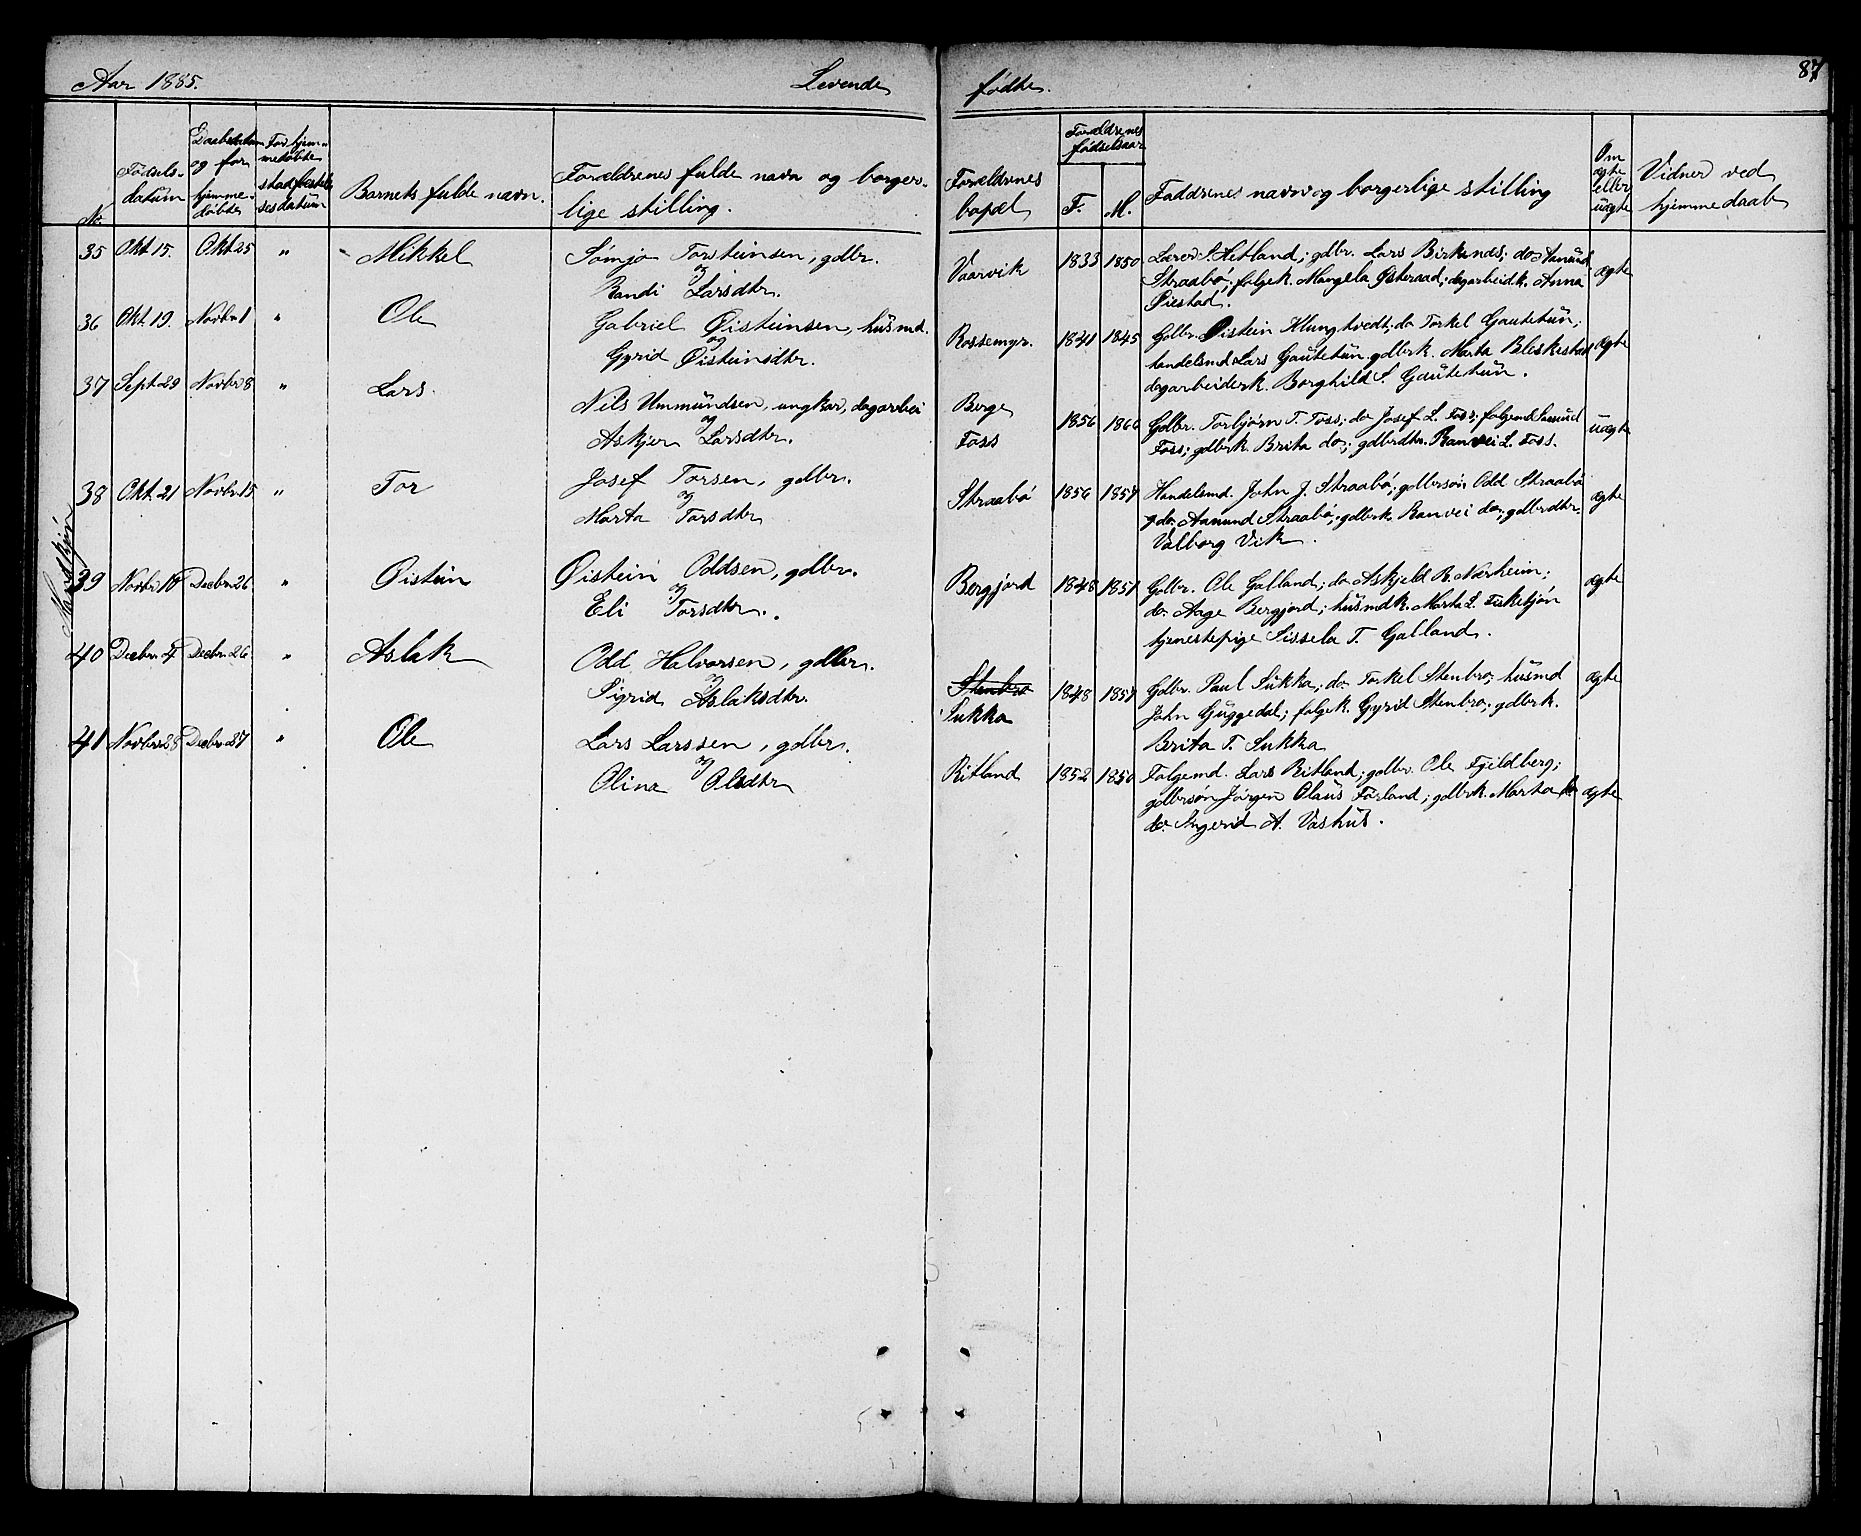 Aar 1885. Levende fødte. 87
No. Fødsels-datum Daabsdatum og for hjemme-døbte For hjem-medøbte stadfæstel-sesdatum Barnets fulde navn. Forældrenes fulde navn og borger-lige stilling. Forældrenes bopæl Forældrenes fødselsaar F. M. Faddrenes navn og borgerlige stilling Om ægte eller uægte Vidner ved hjemmedaab
35 Okt. 15. Okt 25 " Mikkel Sömjo Torsteinsen, gdbr. Vaarvik 1833 1850 Lærer S. Hetland; gdbr. Lars Birkenes; do Aanund
og Randi Larsdtr. Straabö; folgek. Mangela Østeraad; dagarbeidk. Anna ægte
Øiestad.
36 Okt. 19. Novbr 1 " Ole Gabriel Øisteinsen, husmd. Rossemyr. 1841 1845 Gdbr. Øistein Klungtvedt; do Torkel Gautetun;
og Gyrid Øisteinsdtr. handelsmd Lars Gautetun gdbrk. Marta Bleskestad ægte
dagarbeiderk. Borghild S. Gautetun.
37 Sept 29 Novbr 8 " Lars Nils Ummundsen, ungkar, dagarbei Berge 1856 1866 Gdbr. Torbjørn T. Foss; do Josef L. Foss; folgemd
og Askjer Larsdtr. Foss Foss; gdbrk. Brita do; gdbrdtr. Ranvei L. Foss. uægte
38 Okt. 21 Novbr 15 " Tor Josef Torsen, gdbr. Straabö 1856 1857 Handelsmd. John J. Straabö; gdbrsön Odd Straabö
og Marta Torsdtr. Aanund Straabö; gdbrk. Ranvei do; gdbrdtr. ægte
Valborg Vik.
39 Novbr 18 Decbr 26 " Øistein Øistein Oddsen, gdbr. Bergjord 1848 1851 Gdbr. Ole Galland; do Askjeld R. Nærheim; ægte
og Eli Torsdtr. do. Aage Bergjord; husmdk. Marta L. Fisketjön
tjenestepige Sissela T. Galland.
40 Decbr 4 Decbr 26 " Aslak Odd Halvorsen, gdbr. Stenbro 1848 1857 Gdbr. Paul Sukka; do Torkel Stenbro; husmd ægte
og Sigrid Aslaksdtr. Sukka John Guggedal; folgek. Gyrid Stenbro; gdbrk.
Brita T. Sukka
41 Novbr 28 Decbr 27 " Ole Lars Larssen, gdbr. Ritland 1852 1850 Folgemd. Lars Ritland; gdbr. Ole Fjeldberg;
og Olina Olsdtr gdbrsön Jørgen Olaus Førland; gdbrk. Marta do ægte
do. Ingerid A. Vashus.